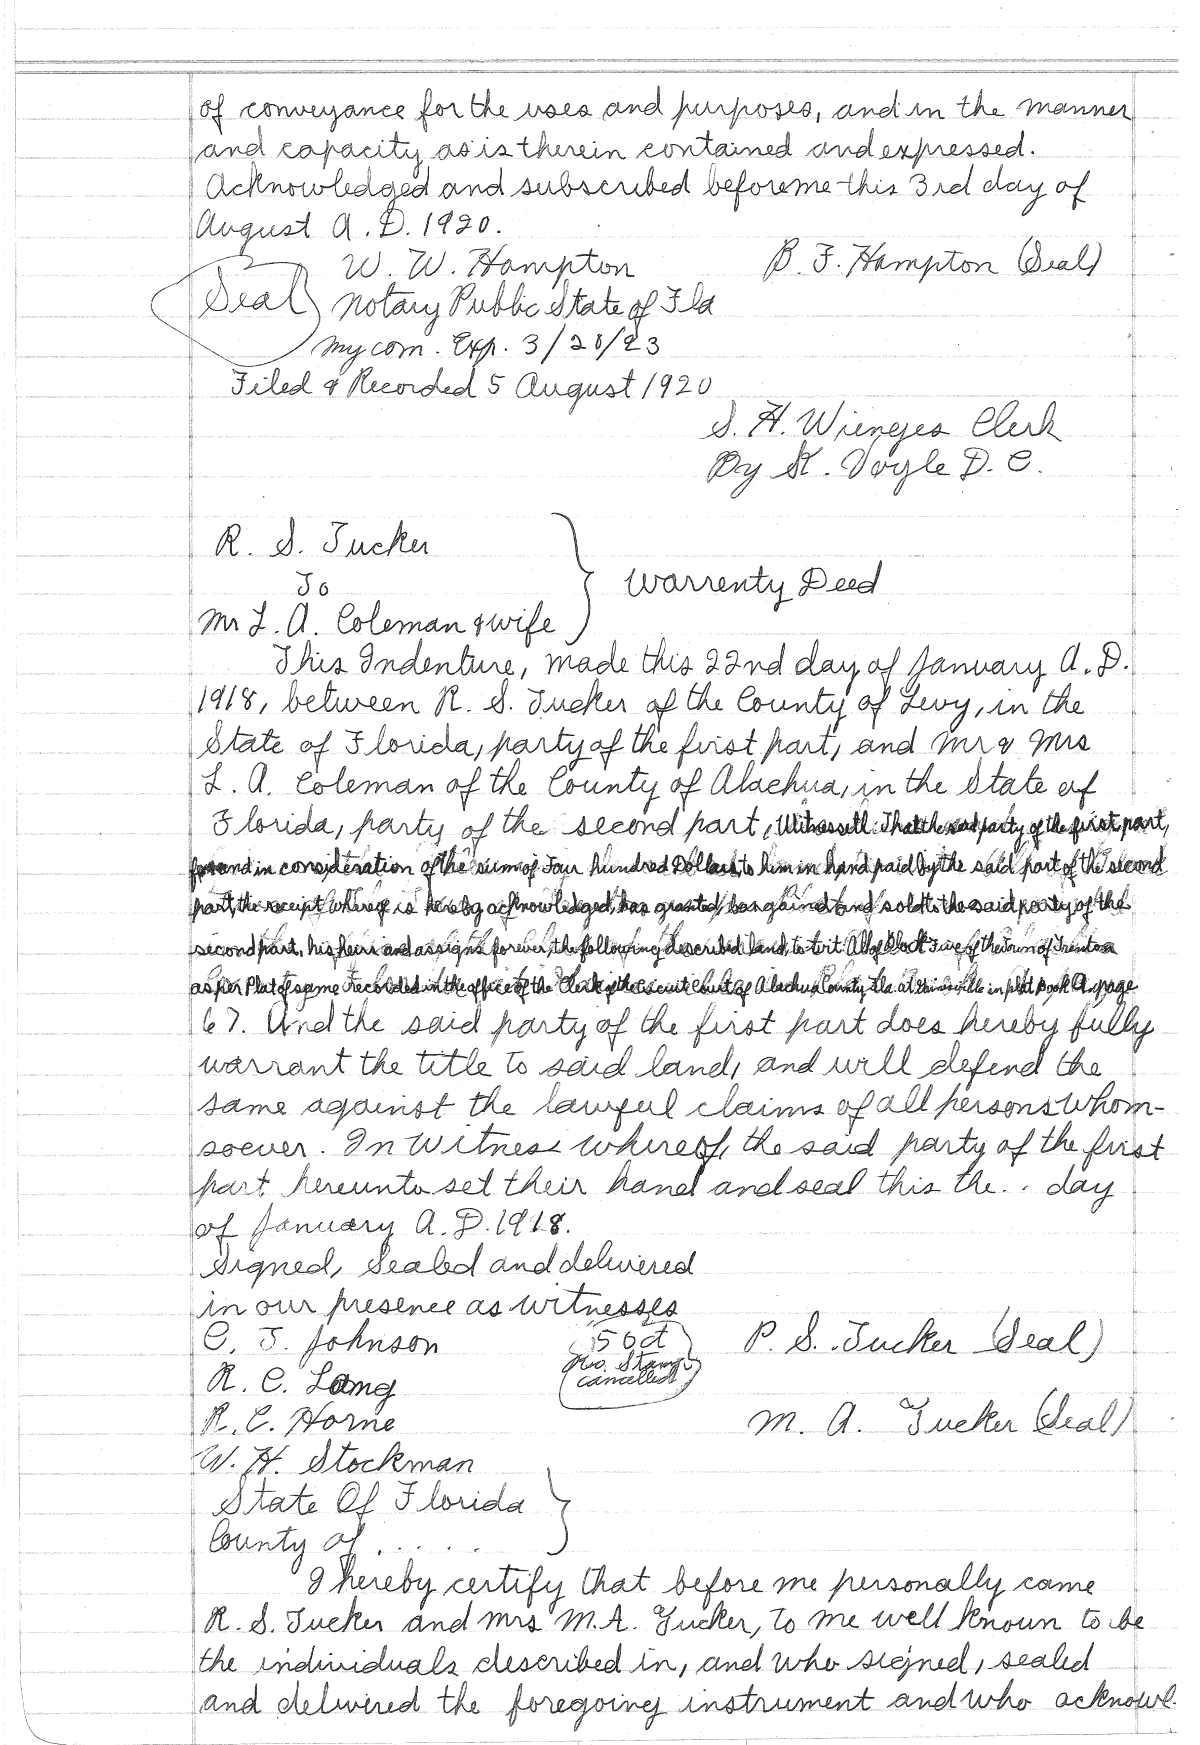 of conveyance for the uses and purposes, and in the manner
and capacity as is therein contained and expressed.
Acknowledged and subscribed before me this 3rd day of
August A.D. 1920.
W. W. Hampton B. F. Hampton (Seal)
Seal Notary Public State of Fla
My com. Exp. 3/28/23
Filed & Recorded 5 August 1920
S. H. Wienges Clerk
By K. Voyle D.C.
R. S. Tucker
To
Mr L. A. Coleman & wife
Warrenty Deed
This Indenture, made this 22nd day of January A.D.
1918, between R. S. Tucker of the County of Levy, in the
State of Florida, party of the first part, and Mr & Mrs
L. A. Coleman of the County of Alachua, in the State of
Florida, party of the second part, Witnesseth: That the said party of the first part,
for and in consideration of the sum of Four hundred Dollars, to him in hand paid by the said part of the second
part, the receipt whereof is hereby acknowledged, has granted, bargained and sold to the said party of the
second part, his heirs and assigns forever, the following described land, to wit: All of Block Five of the Town of Trenton
as per Plat of same recorded in the office of the Clerk of the circuit Court of Alachua County Fla. at Gainesville in plat Book A page
67. And the said party of the first part does hereby fully
warrant the title to said land, and will defend the
same against the lawful claims of all persons whom-
soever. In Witness whereof, the said party of the first
part hereunto set their hand and seal this the .. day
of January A.D. 1918.
Signed, Sealed and delivered
in our presence as witnesses
C. J. Johnson 50ct P. S. Tucker (Seal)
R. C. Lang Rev. Stamp
cancelled
R. C. Horne M. A. Tucker (Seal)
W. H. Stockman
State Of Florida
County of .....
I hereby certify that before me personally came
R. S. Tucker and Mrs M.A. Tucker, to me well known to be
the individuals described in, and who signed, sealed
and delivered the foregoing instrument and who acknowl-